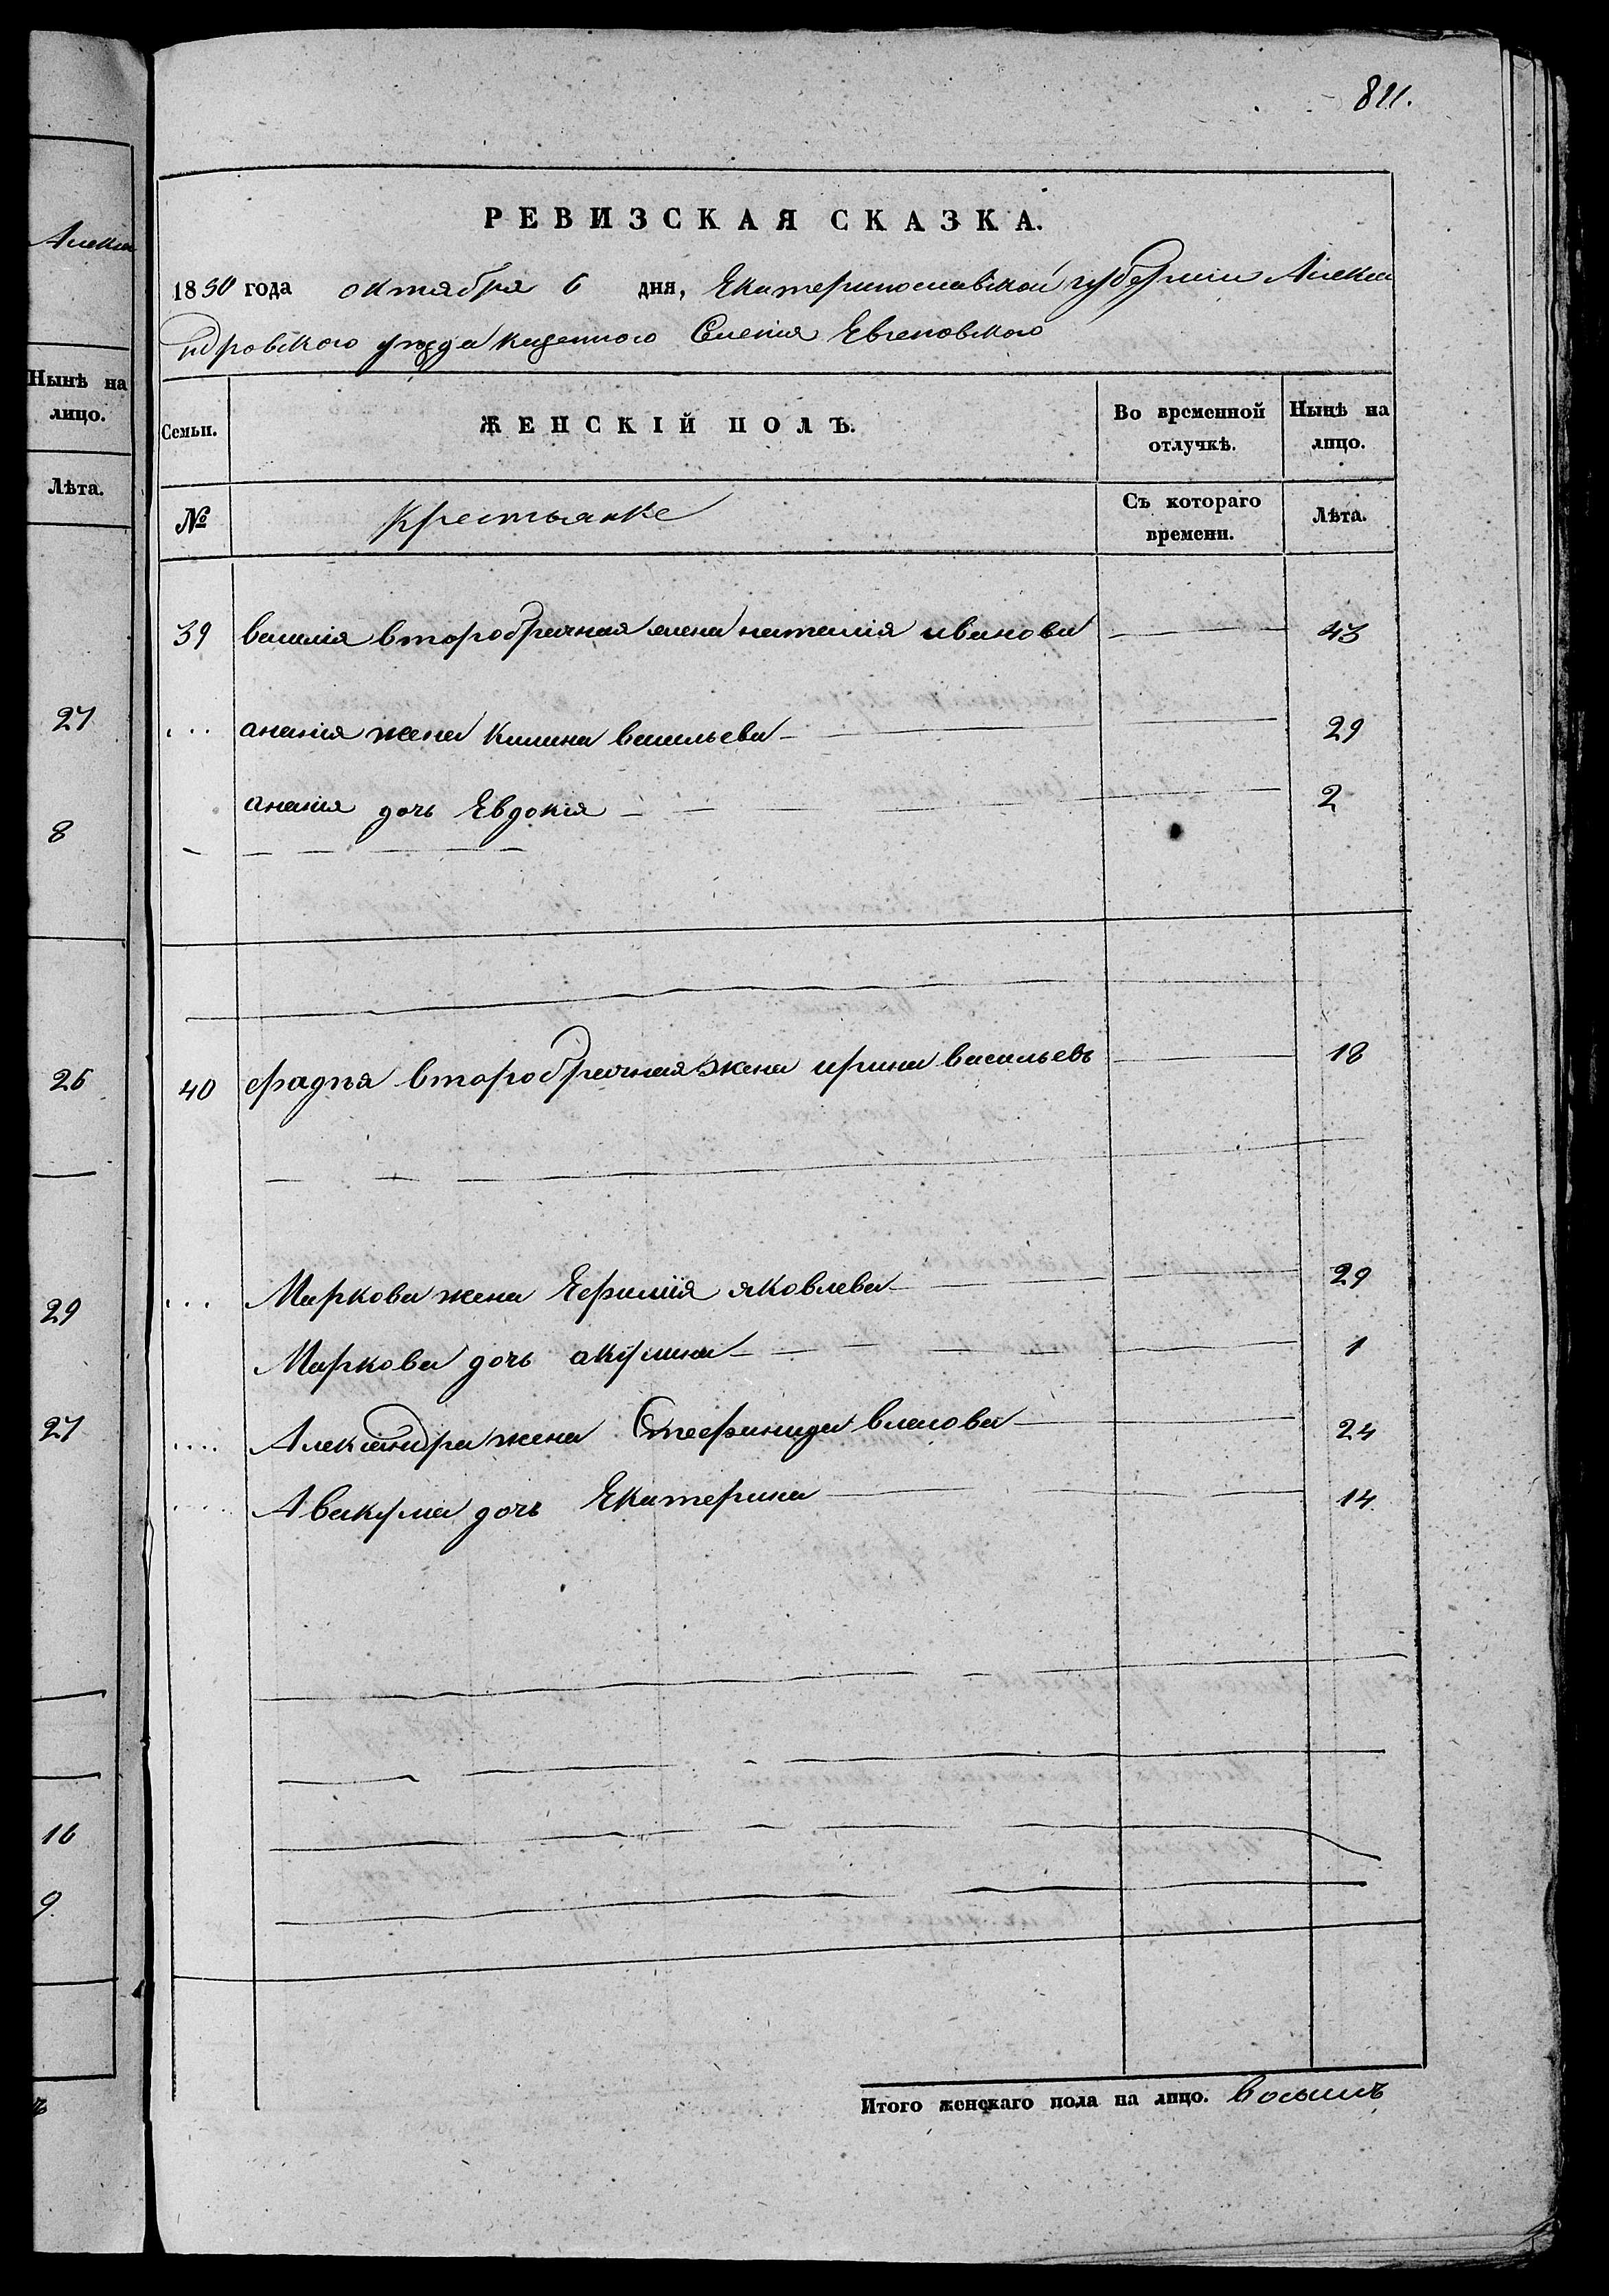 811.
Алекса
РЕВИЗСКАЯ СКАЗКА.
1850 года октября 6 дня, Екатеринославской губернии Алекса
ндровского уезда казенного Селения Евгеновского
Нынѣ на лицо.
Лѣта.
27
8
26
29
27
16
9
Семьи. ЖЕНСКІЙ ПОЛЪ. Во временной отлучкѣ. Нынѣ на лицо.
№ Крестьянке Съ котораго времени. Лѣта.
39 василия второбрачная жена наталия иванова 43
анания жена Килина васильева 29
анания дочь Евдокия 2
40 фадея второбрачная жена ирина васильевъ 18
Маркова жена Ефимия яковлева 29
Маркова дочь акулина 1
Александра жена Стефанида власова 24
Авакума дочь Екатерина 14
Итого женскаго пола на лицо. восемъ